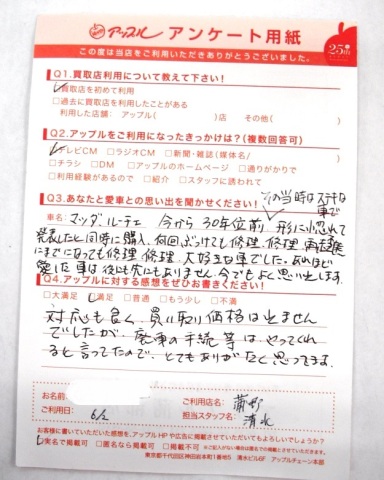 アップル アンケート用紙
この度は当店をご利用いただきありがとうございました。
25th
Q1.買取店利用について教えて下さい!
☑買取店を初めて利用
□過去に買取店を利用したことがある
利用した店舗: アップル( )店 その他( )
Q2.アップルをご利用になったきっかけは?(複数回答可)
☑テレビCM □ラジオCM □新聞・雑誌(媒体名/ )
□チラシ □DM □アップルのホームページ □通りがかりで
□利用経験があるので □紹介 □スタッフに誘われて
Q3.あなたと愛車との思い出を聞かせください!
その当時はステキな車で
車名: マツダ ルーチェ 今から30年位前 形に小惚れて
発表したと同時に購入、何回ぶつけても修理、修理
にまでになっても修理、修理、大好きな車でした。あれほど
愛した車は後にも先にもありません。今でもよく思い出します。
Q4.アップルに対する感想をぜひお書きください!
□大満足 ☑満足 □普通 □もう少し □不満
対応も良く、買い取り価格は出ません
でしたが、廃車の手続等は、やってくれ
ると言ってたので、とてもありがたく思ってます。
お名前
ご利用店名:
ご利用日: 6/2
担当スタッフ名: 清水
お客様に書いていただいた感想を、アップルHPや広告に掲載させていただいてもよろしいでしょうか?
☑実名で掲載可 □匿名なら掲載可 □掲載不可
※ご記入がない場合は匿名での掲載とさせていただきます。
東京都千代田区神田鍛治町1番地5 清水ビル6F アップルチェーン本部